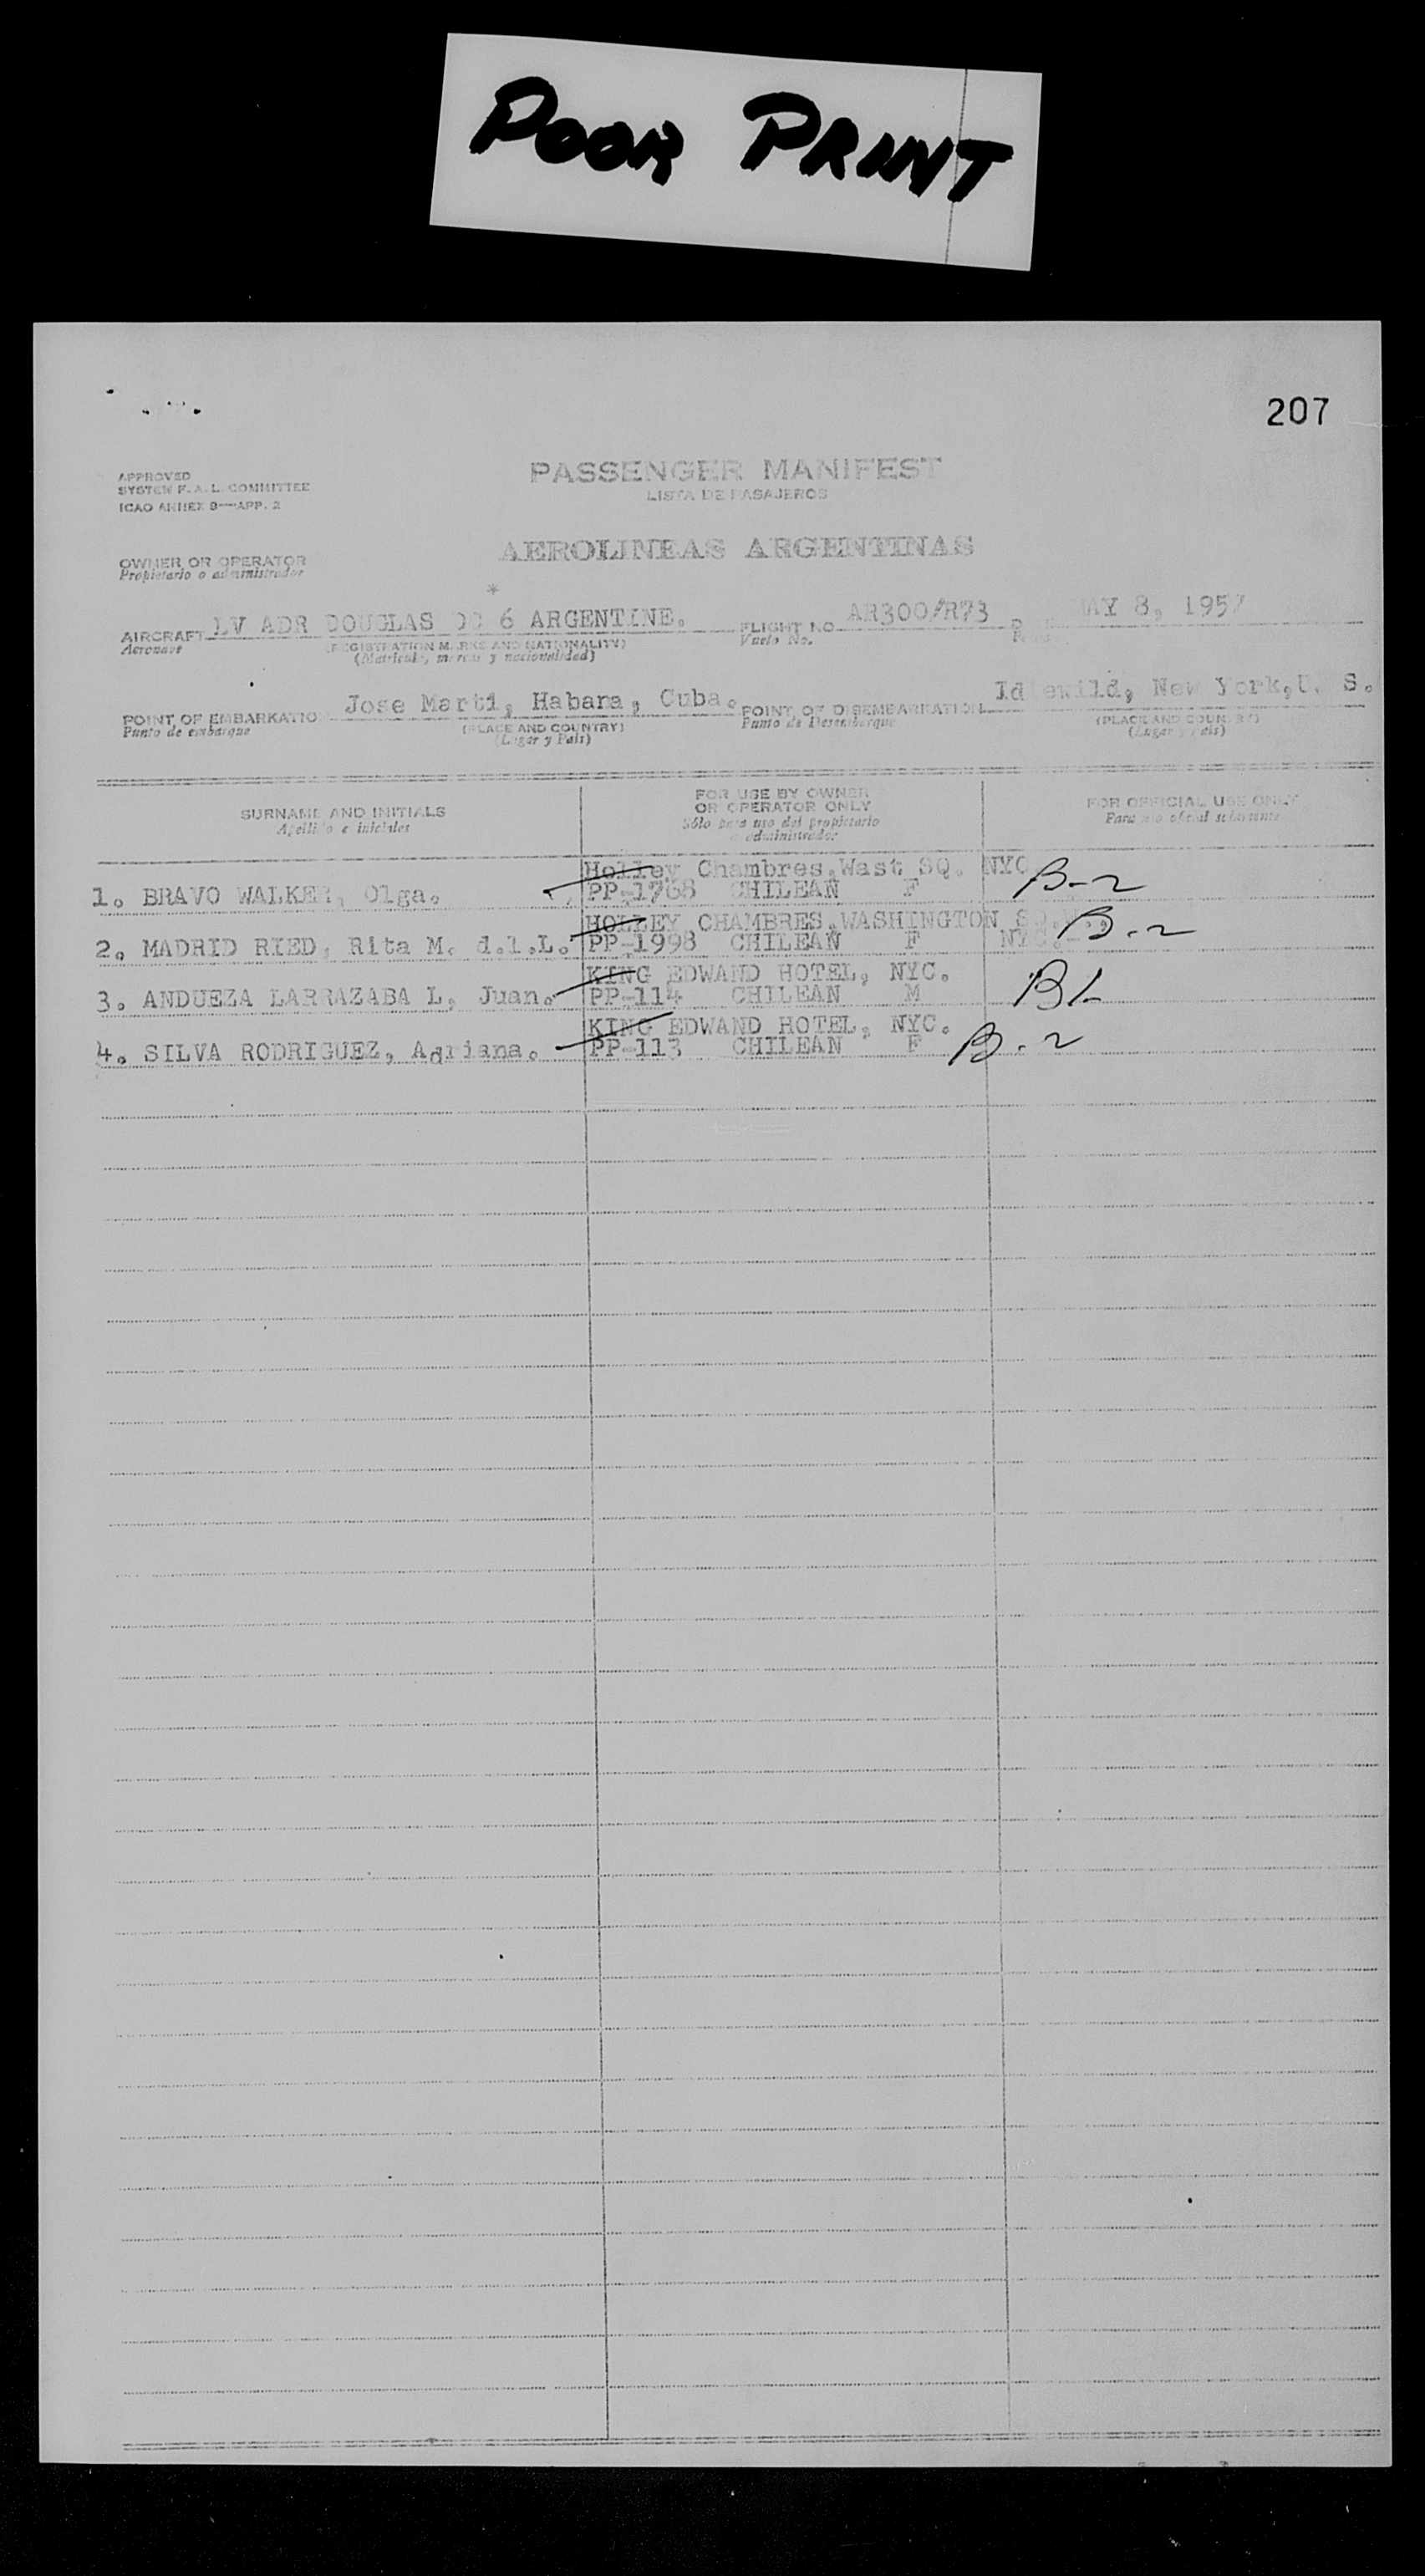 POOR PRINT
207
APPROVED
SYSTEM F.A.L. COMMITTEE
ICAO ANNEX 9—APP. 2
PASSENGER MANIFEST
LISTA DE PASAJEROS
OWNER OR OPERATOR
Propietario o administrador
AEROLINEAS ARGENTINAS
*
AIRCRAFT LV ADR DOUGLAS DC 6 ARGENTINE. FLIGHT NO. AR300/R73 MAY 8, 1957
Aeronave (REGISTRATION MARKS AND NATIONALITY) Vuelo No.
(Matrícula, marcas y nacionalidad)
POINT OF EMBARKATION Jose Marti, Habara, Cuba. POINT OF DISEMBARKATION Idlewild, New York, U. S.
Punto de embarque (PLACE AND COUNTRY) Punto de Desembarque (PLACE AND COUNTRY)
(Lugar y País) (Lugar y País)
SURNAME AND INITIALS
Apellido e iniciales
FOR USE BY OWNER
OR OPERATOR ONLY
Sólo para uso del propietario
o administrador
FOR OFFICIAL USE ONLY
Para uso oficial solamente
Holley Chambres.Wast SQ. NYC
1. BRAVO WALKER, Olga. PP-1768 CHILEAN F B-2
HOLLEY CHAMBRES.WASHINGTON
2. MADRID RIED, Rita M. d.l.L. PP-1998 CHILEAN F B-2
KING EDWAND HOTEL, NYC.
3. ANDUEZA LARRAZABA L, Juan. PP-114 CHILEAN M
KING EDWAND HOTEL, NYC.
4. SILVA RODRIGUEZ, Adriana. PP-113 CHILEAN F B-2